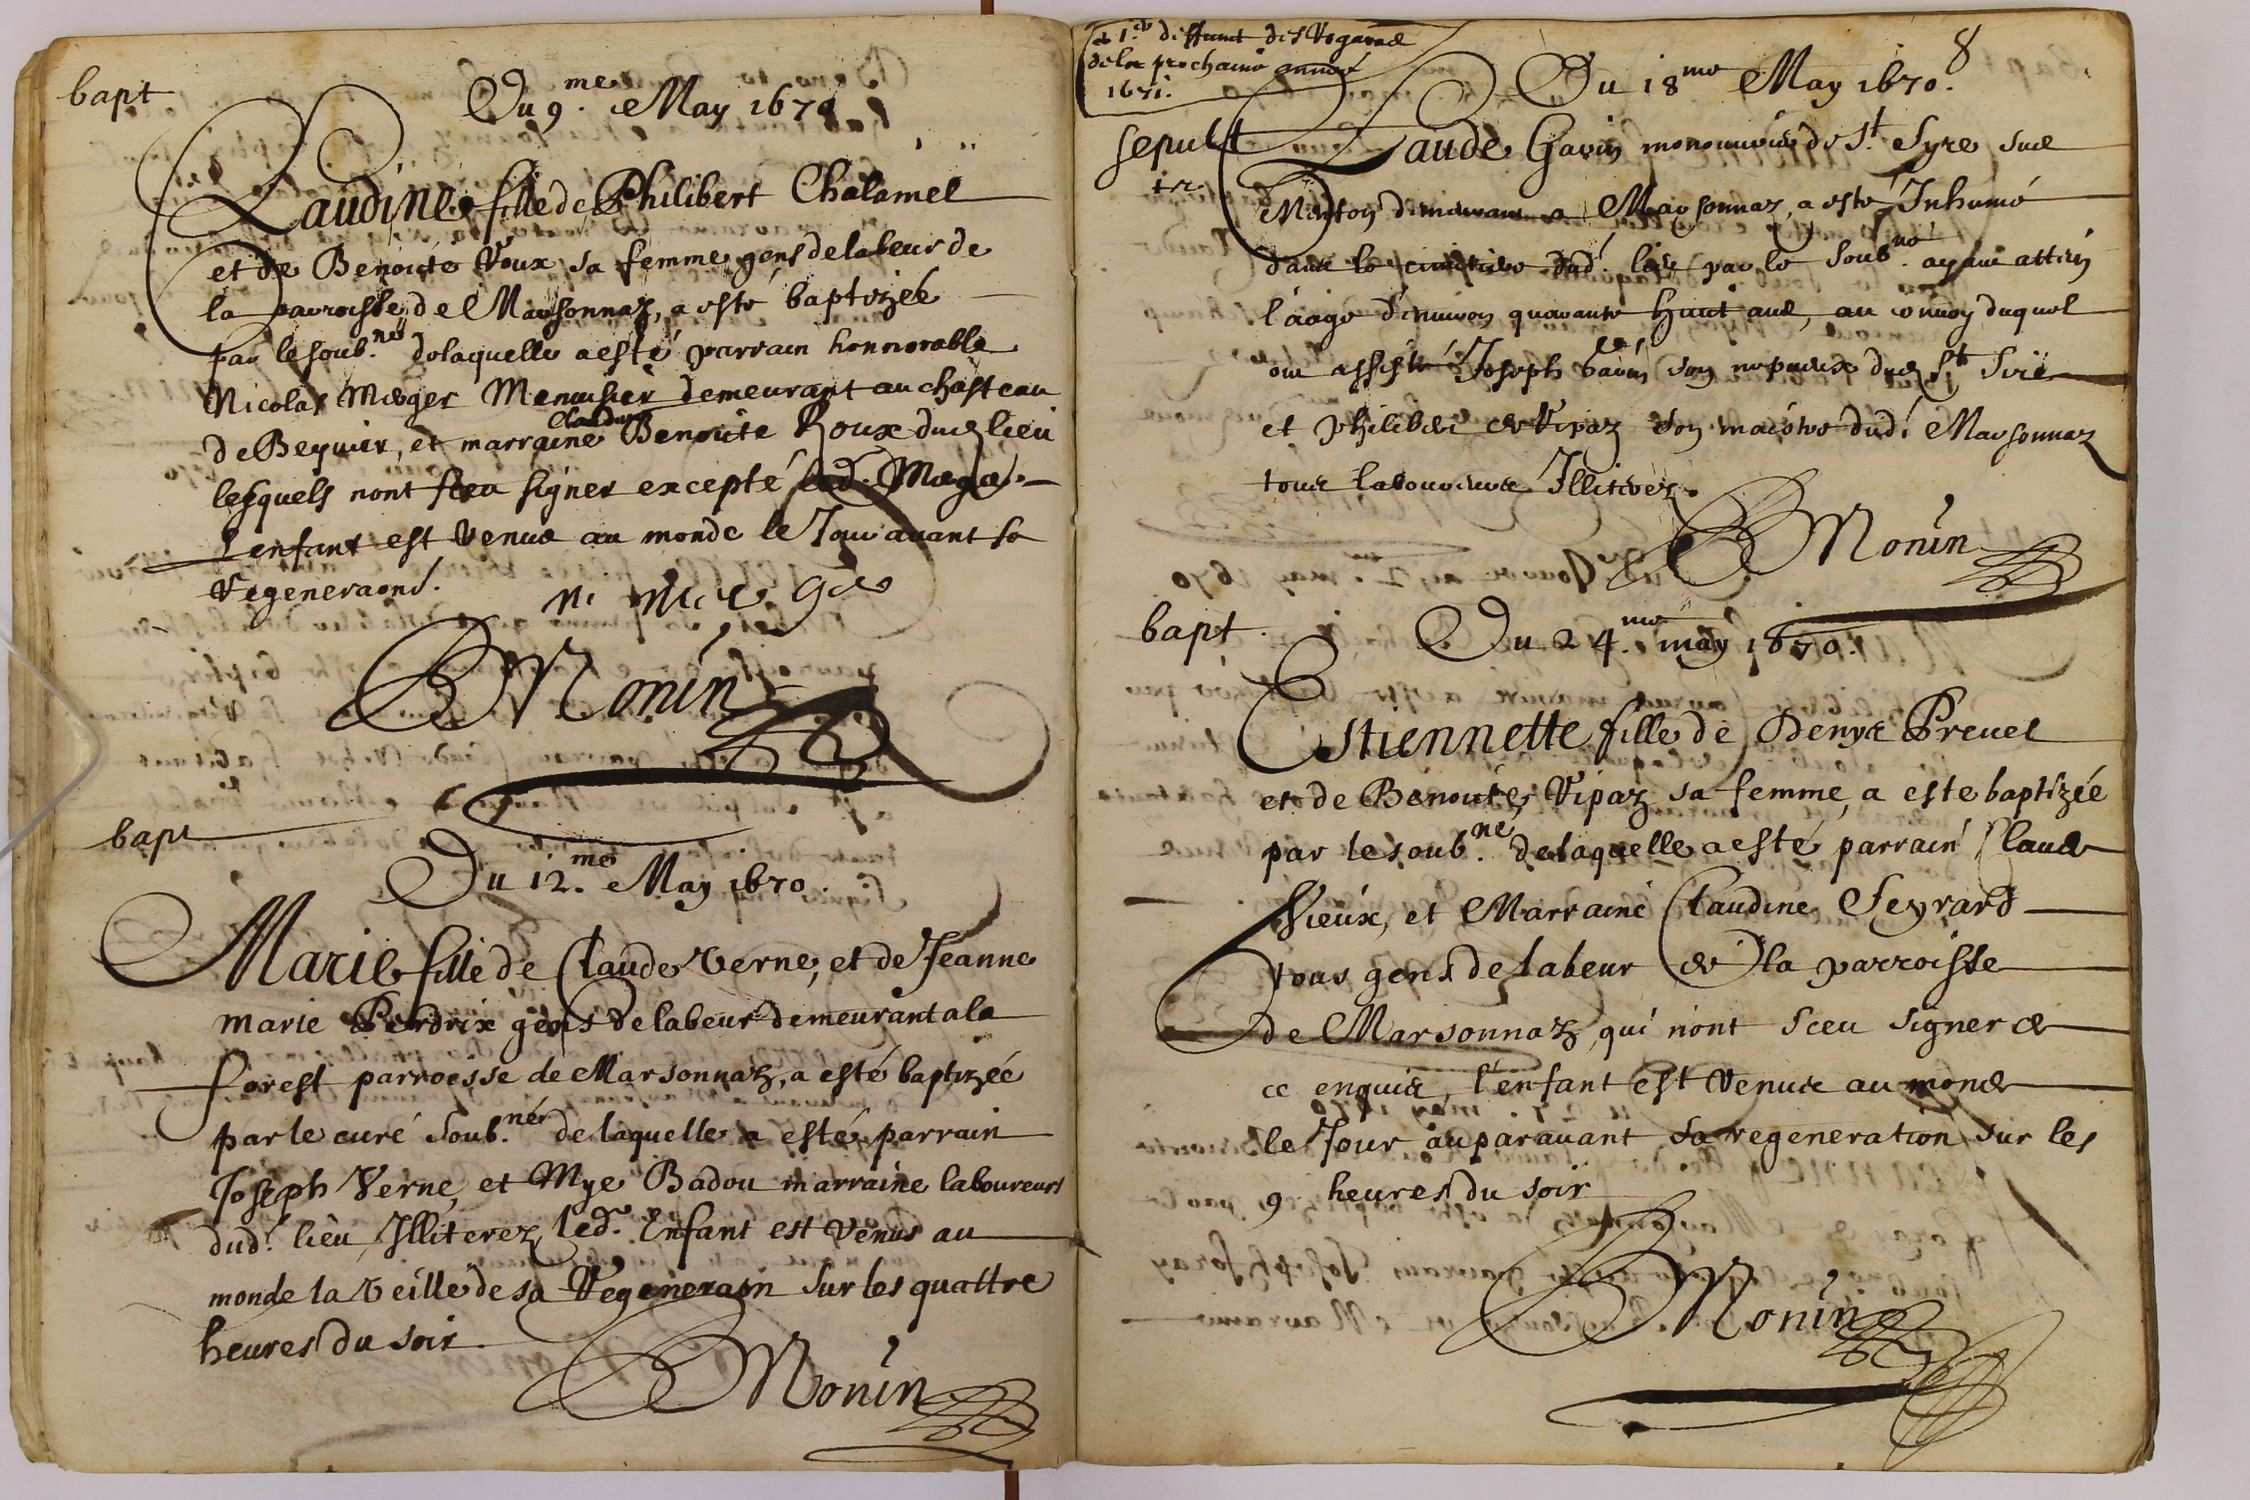 bapt
Du 9.me May 1670
Claudine fille de Philibert Chalamel
et de Benoite Voux sa femme gens de labeur de
la parroisse de Marsonnaz, a esté baptizéé
par le soub.né de laquelle a esté parrain honnorable
Nicolas Mieger Menusier demeurant au chasteau
de Beyvier, et marraine Claudine Benoite Roux dud lieu
lesquels nont sceu signer excepté led. Miege.
L'enfant est venue au monde le Jour avant sa
regeneraond.
Monin
bapt
Du 12.me May 1670.
Marie fille de Claude Verne, et de Jeanne
marie Perdrix gens de labeur demeurant a la
forest parroisse de Marsonnaz, a esté baptizéé
par le curé soub.né de laquelle a esté parrain
Joseph Verne, et Mye Badou marraine laboureurs
dud. lieu, Illiterez, led. Enfant est venus au
monde la veille de sa Regeneraon sur les quattre
heures du soir.
Monin
8
1.er deffunct des
de la prochaine année
1671.
Du 18me May 1670.
sepult
Claude Gavin de St. Syre
Menton demeurant a Marsonnaz, a esté Inhumé
dans le cimetiere dud. lieu par le soub.né ayant attein
l'aage d'environ quarante huict ans, au convoy duquel
ont assisté Joseph Gavin son nepveux dud St Sire
et Philibert de Vipaz son maistre dud. Marsonnaz
tous laboureurs Illiterez.
Monin
bapt.
Du 24.me may 1670.
Estiennette fille de Denys Prevel
et de Benoite Vipaz sa femme, a este baptizéé
par le soub.né de laquelle a esté parrain Claude
Vieux, et Marraine Claudine Feyrard
tous gens de labeur de la parroisse
de Marsonnaz, qui n'ont sceu signer de
ce enquis, l'enfant est venue au monde
le Jour auparavant sa regeneration sur les
9 heures du soir
Monin